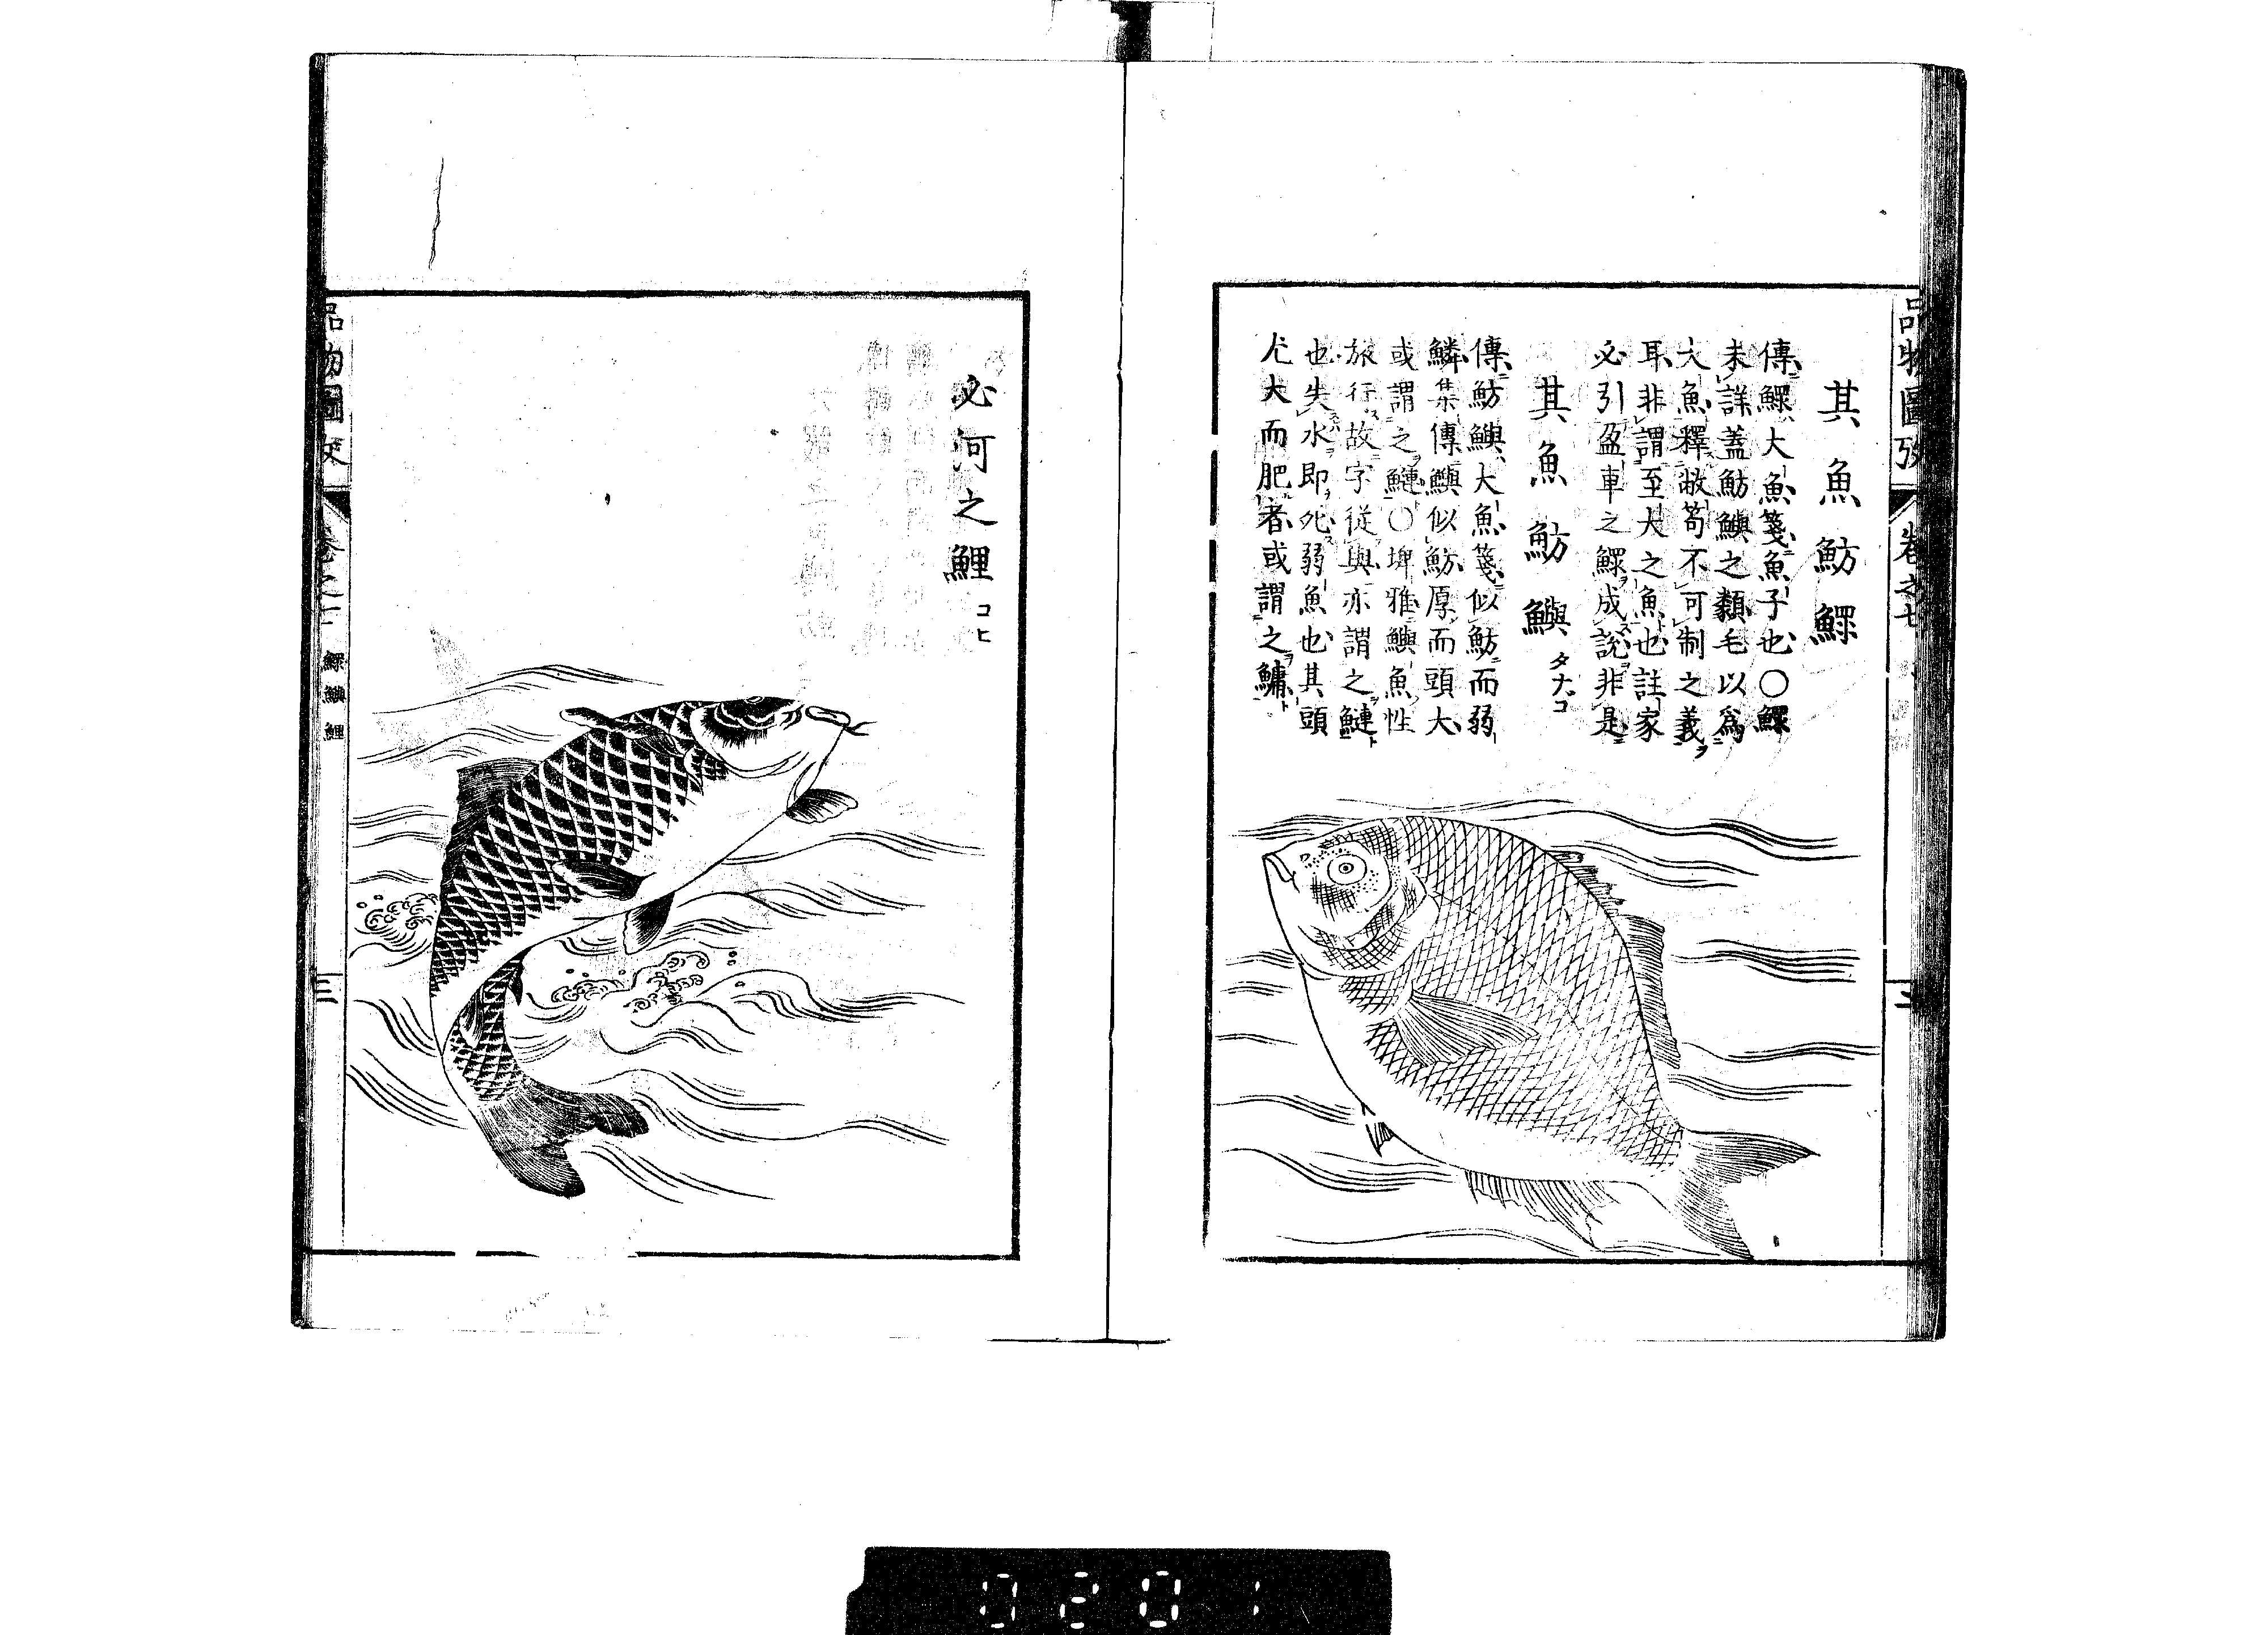 品物圖攷
卷之七
其魚魴鰥
傳鰥大魚箋魚子也〇鰥
未詳蓋魴鱮之類毛以爲
大魚釋敝笱不可制之義ヲ
耳非謂至大之魚也註家
必引盈車之鰥成說非是
其魚魴鱮 タナコ
傳魴鱮大魚箋似魴而弱
鱗集傳鱮似魴厚而頭大
或謂之鰱〇埤雅鱮魚性
旅行故字從與亦謂之鰱
也失水即死弱魚也其頭
尤大而肥者或謂之鱅
必河之鯉 コヒ
品物圖攷
卷之七
鰥鱮鯉
三
0201